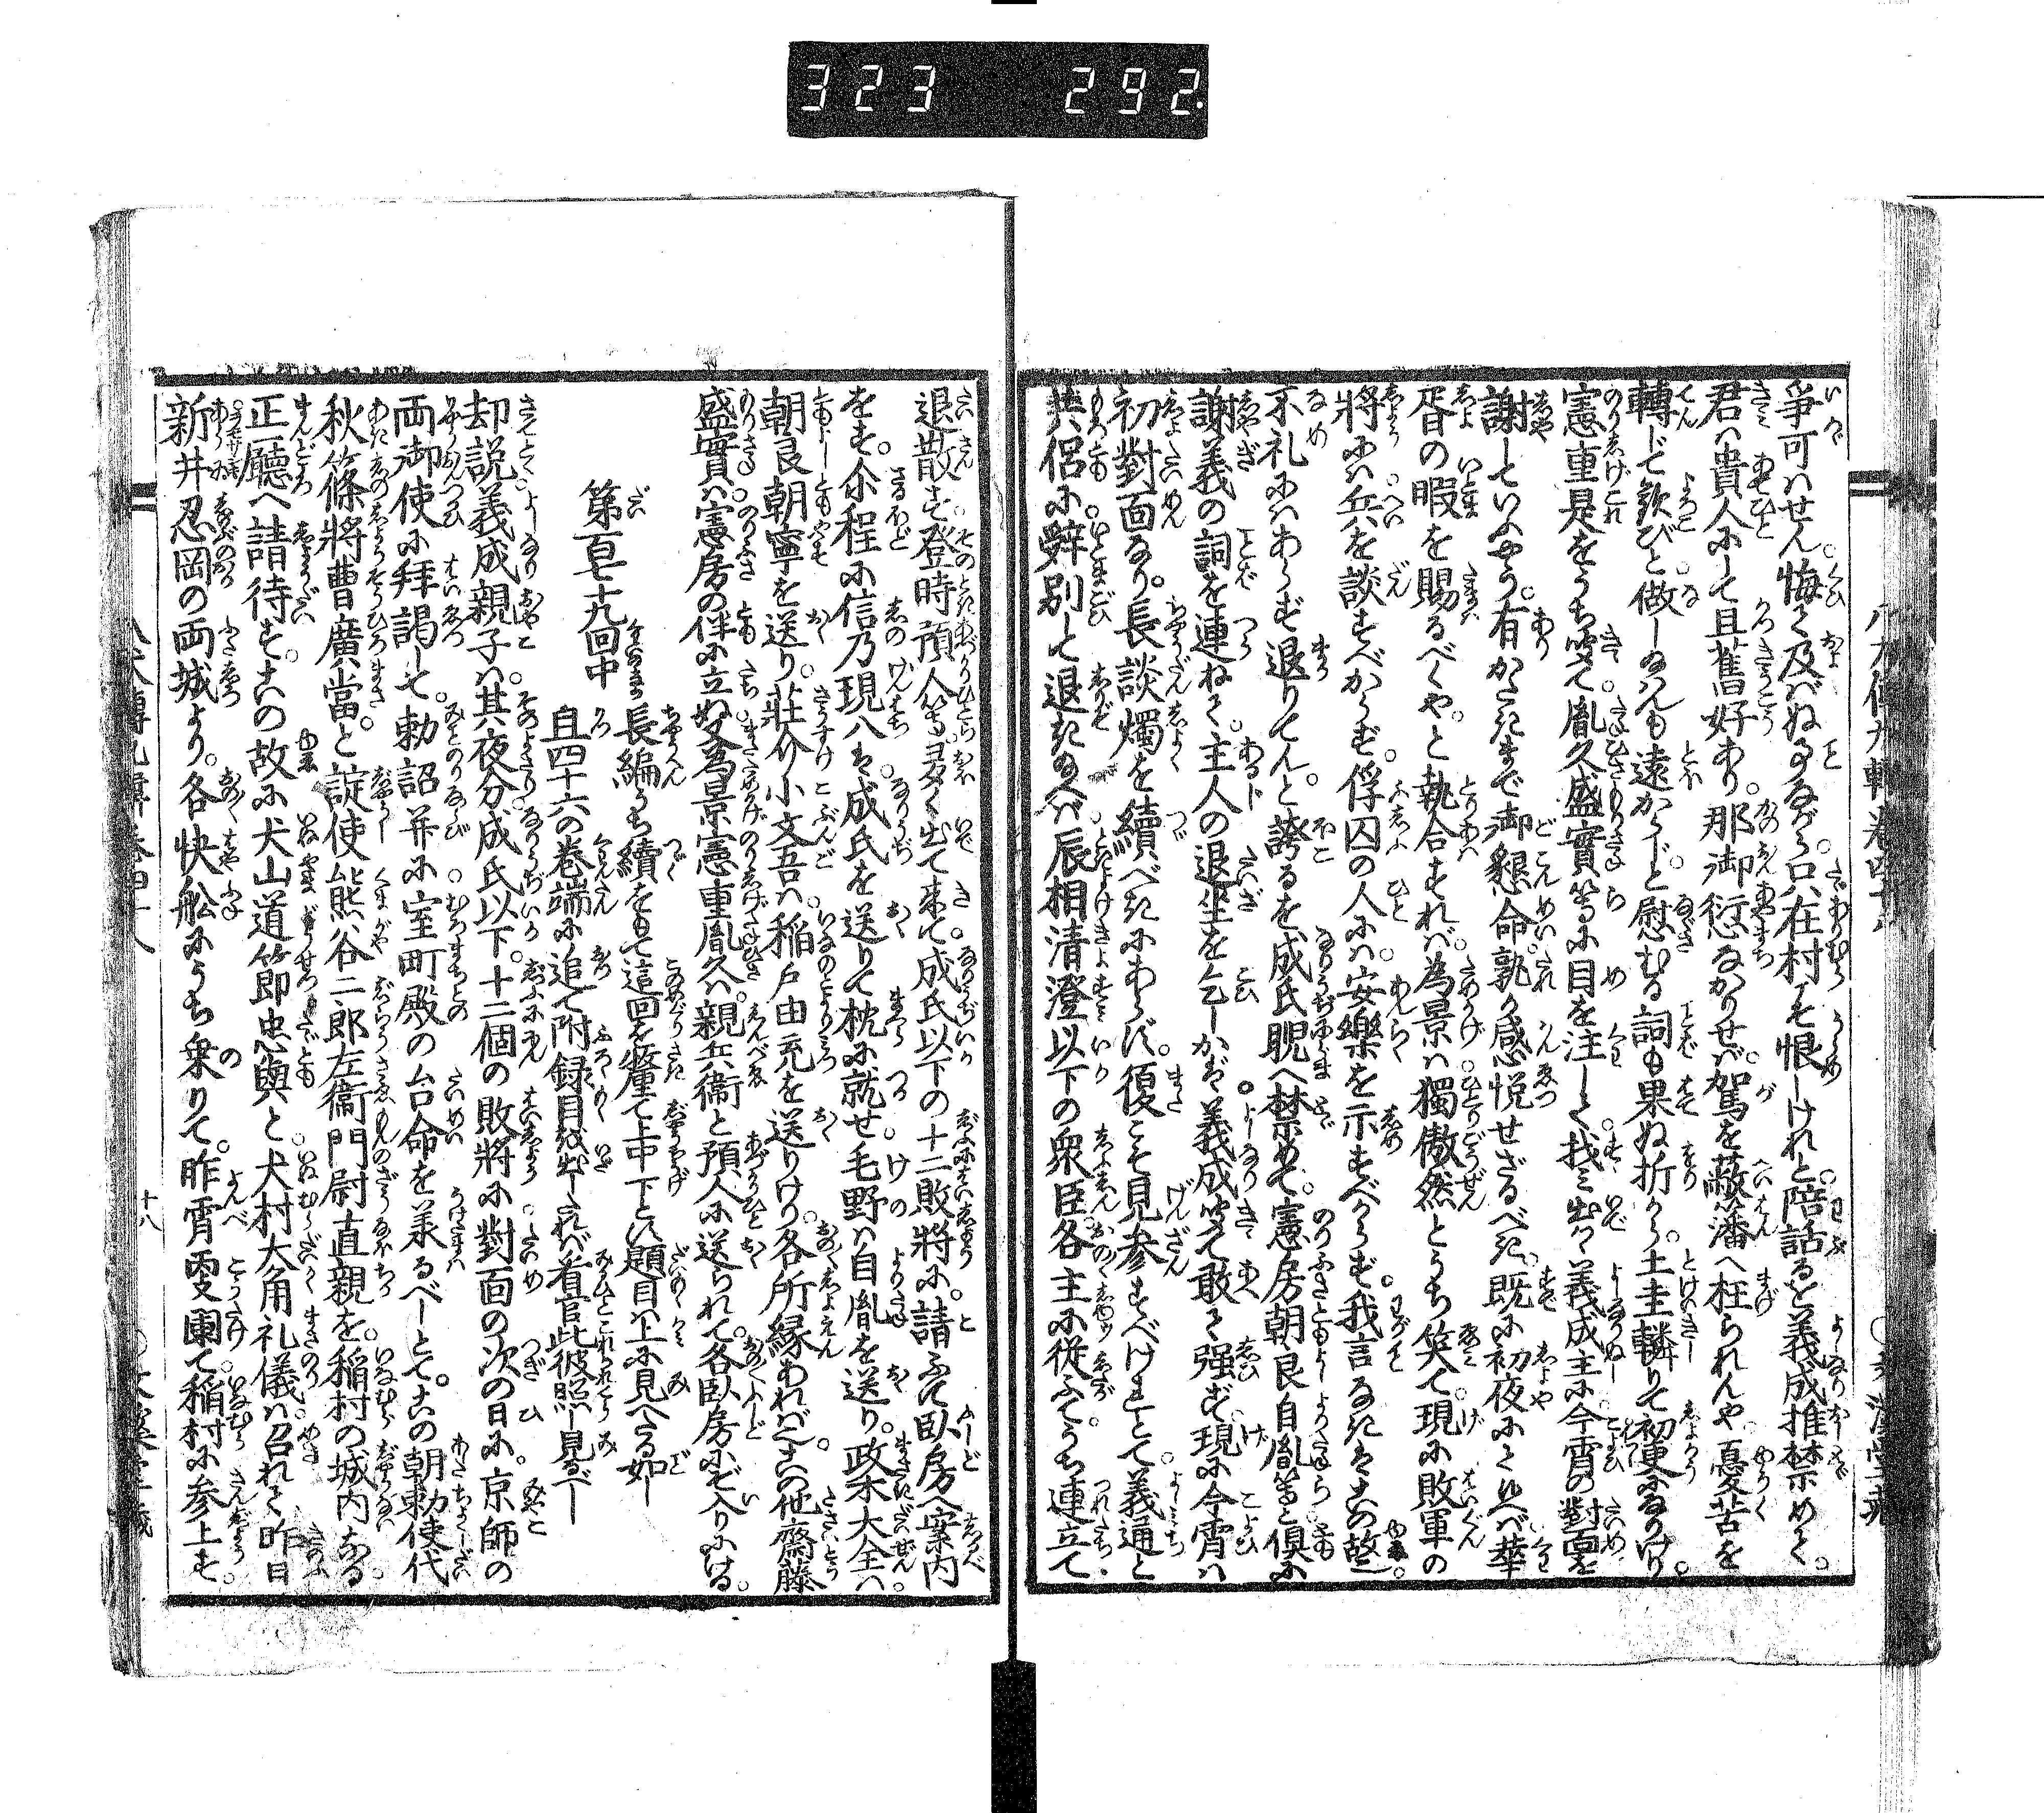 323 292.
八犬傳九輯卷四十八
爭可はせん。悔て及ばぬ事ながら。只在村こそ恨しけれと。陪話るを義成推禁めて。
君は貴人にして且舊好あり。那御愆なかりせば。駕を蔽藩へ枉られんや。憂苦を
轉じて歓びと做し給んも遠からじ。と慰むる詞も果ぬ折から。土圭轔りて初更になりけり。
憲重是をうち聞て。胤久盛實等に目を注しく。找み出て義成主に今宵の對面を
謝していふやう。有がたきまで御懇命。孰か感悦せざるべき。既に初夜にて候へば。華
胥の暇を賜るべくや。と執合すれば。為景は獨傲然とうち笑て。現に敗軍の
將には兵を談ずべからず。俘囚の人には安樂を示すべからず。我言なきはこの故也。
不礼にはあらず退りてん。と誇るを成氏睨へ禁めて。憲房朝良自胤等と俱に
謝義の詞を連ねて。主人の退坐を乞しかば。義成聞て敢て强ず。現に今宵は
初對面なり。長談燭を續べきにあらず。復こそ見参すべけれとて。義通と
共侶に辞別して退き給へば。辰相清澄以下の衆臣。各主に從ふてうち連立て
退散す。登時預人等ヨタく出て來て。成氏以下の十二敗將に。請ふて臥房へ案内
をす。尒程に信乃現八は。成氏を送りて枕に就せ。毛野は自胤を送り。政木大全は
朝良朝寧を送り。莊介小文吾は。稲戸由充を送りけり。各所縁あればなり。この他齋藤
盛實は。憲房の伴に立ぬ。又為景憲重胤久は。親兵衞と預人に送られて。各臥房にぞ入りにける。
第百七十九回中
長編うち續くをもて這回を釐て上中下とす。題目は上に見へたる如し
且四十六の巻端に追て附録目を出したれば看官此彼照し見るべし
却説義成親子は。其夜分成氏以下。十二個の敗將に對面の次の日に。京師の
両御使に拜謁して。勅詔并に室町殿の台命を美るべしとて。この朝勅使代
秋篠將曹廣當。と諚使熊谷二郎左衞門尉直親を。稲村の城内なる
正廳へ請待す。この故に犬山道節忠與と。犬村大角礼儀は。召れて昨日
新井忍岡の両城より。各快舩にうち乗りて。昨宵更闌て稲村に参上す。
八犬傳九輯卷四十八
十八